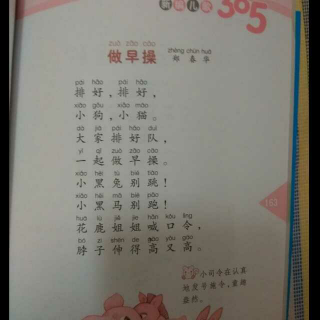 新编儿歌365
zuò zǎo cāo
做早操
zhèng chūn huá
郑春华
pái hǎo pái hǎo
排好,排好,
xiǎo gǒu xiǎo māo
小狗,小猫。
dà jiā pái hǎo duì
大家排好队,
yì qǐ zuò zǎo cāo
一起做早操。
xiǎo hēi tù bié tiào
小黑兔别跳!
xiǎo hēi mǎ bié pǎo
小黑马别跑!
huā lù jiě jie hǎn kǒu lìng
花鹿姐姐喊口令,
bó zi shēn de gāo yòu gāo
脖子伸得高又高。
小司令在认真
地发号施令,蛮好
163